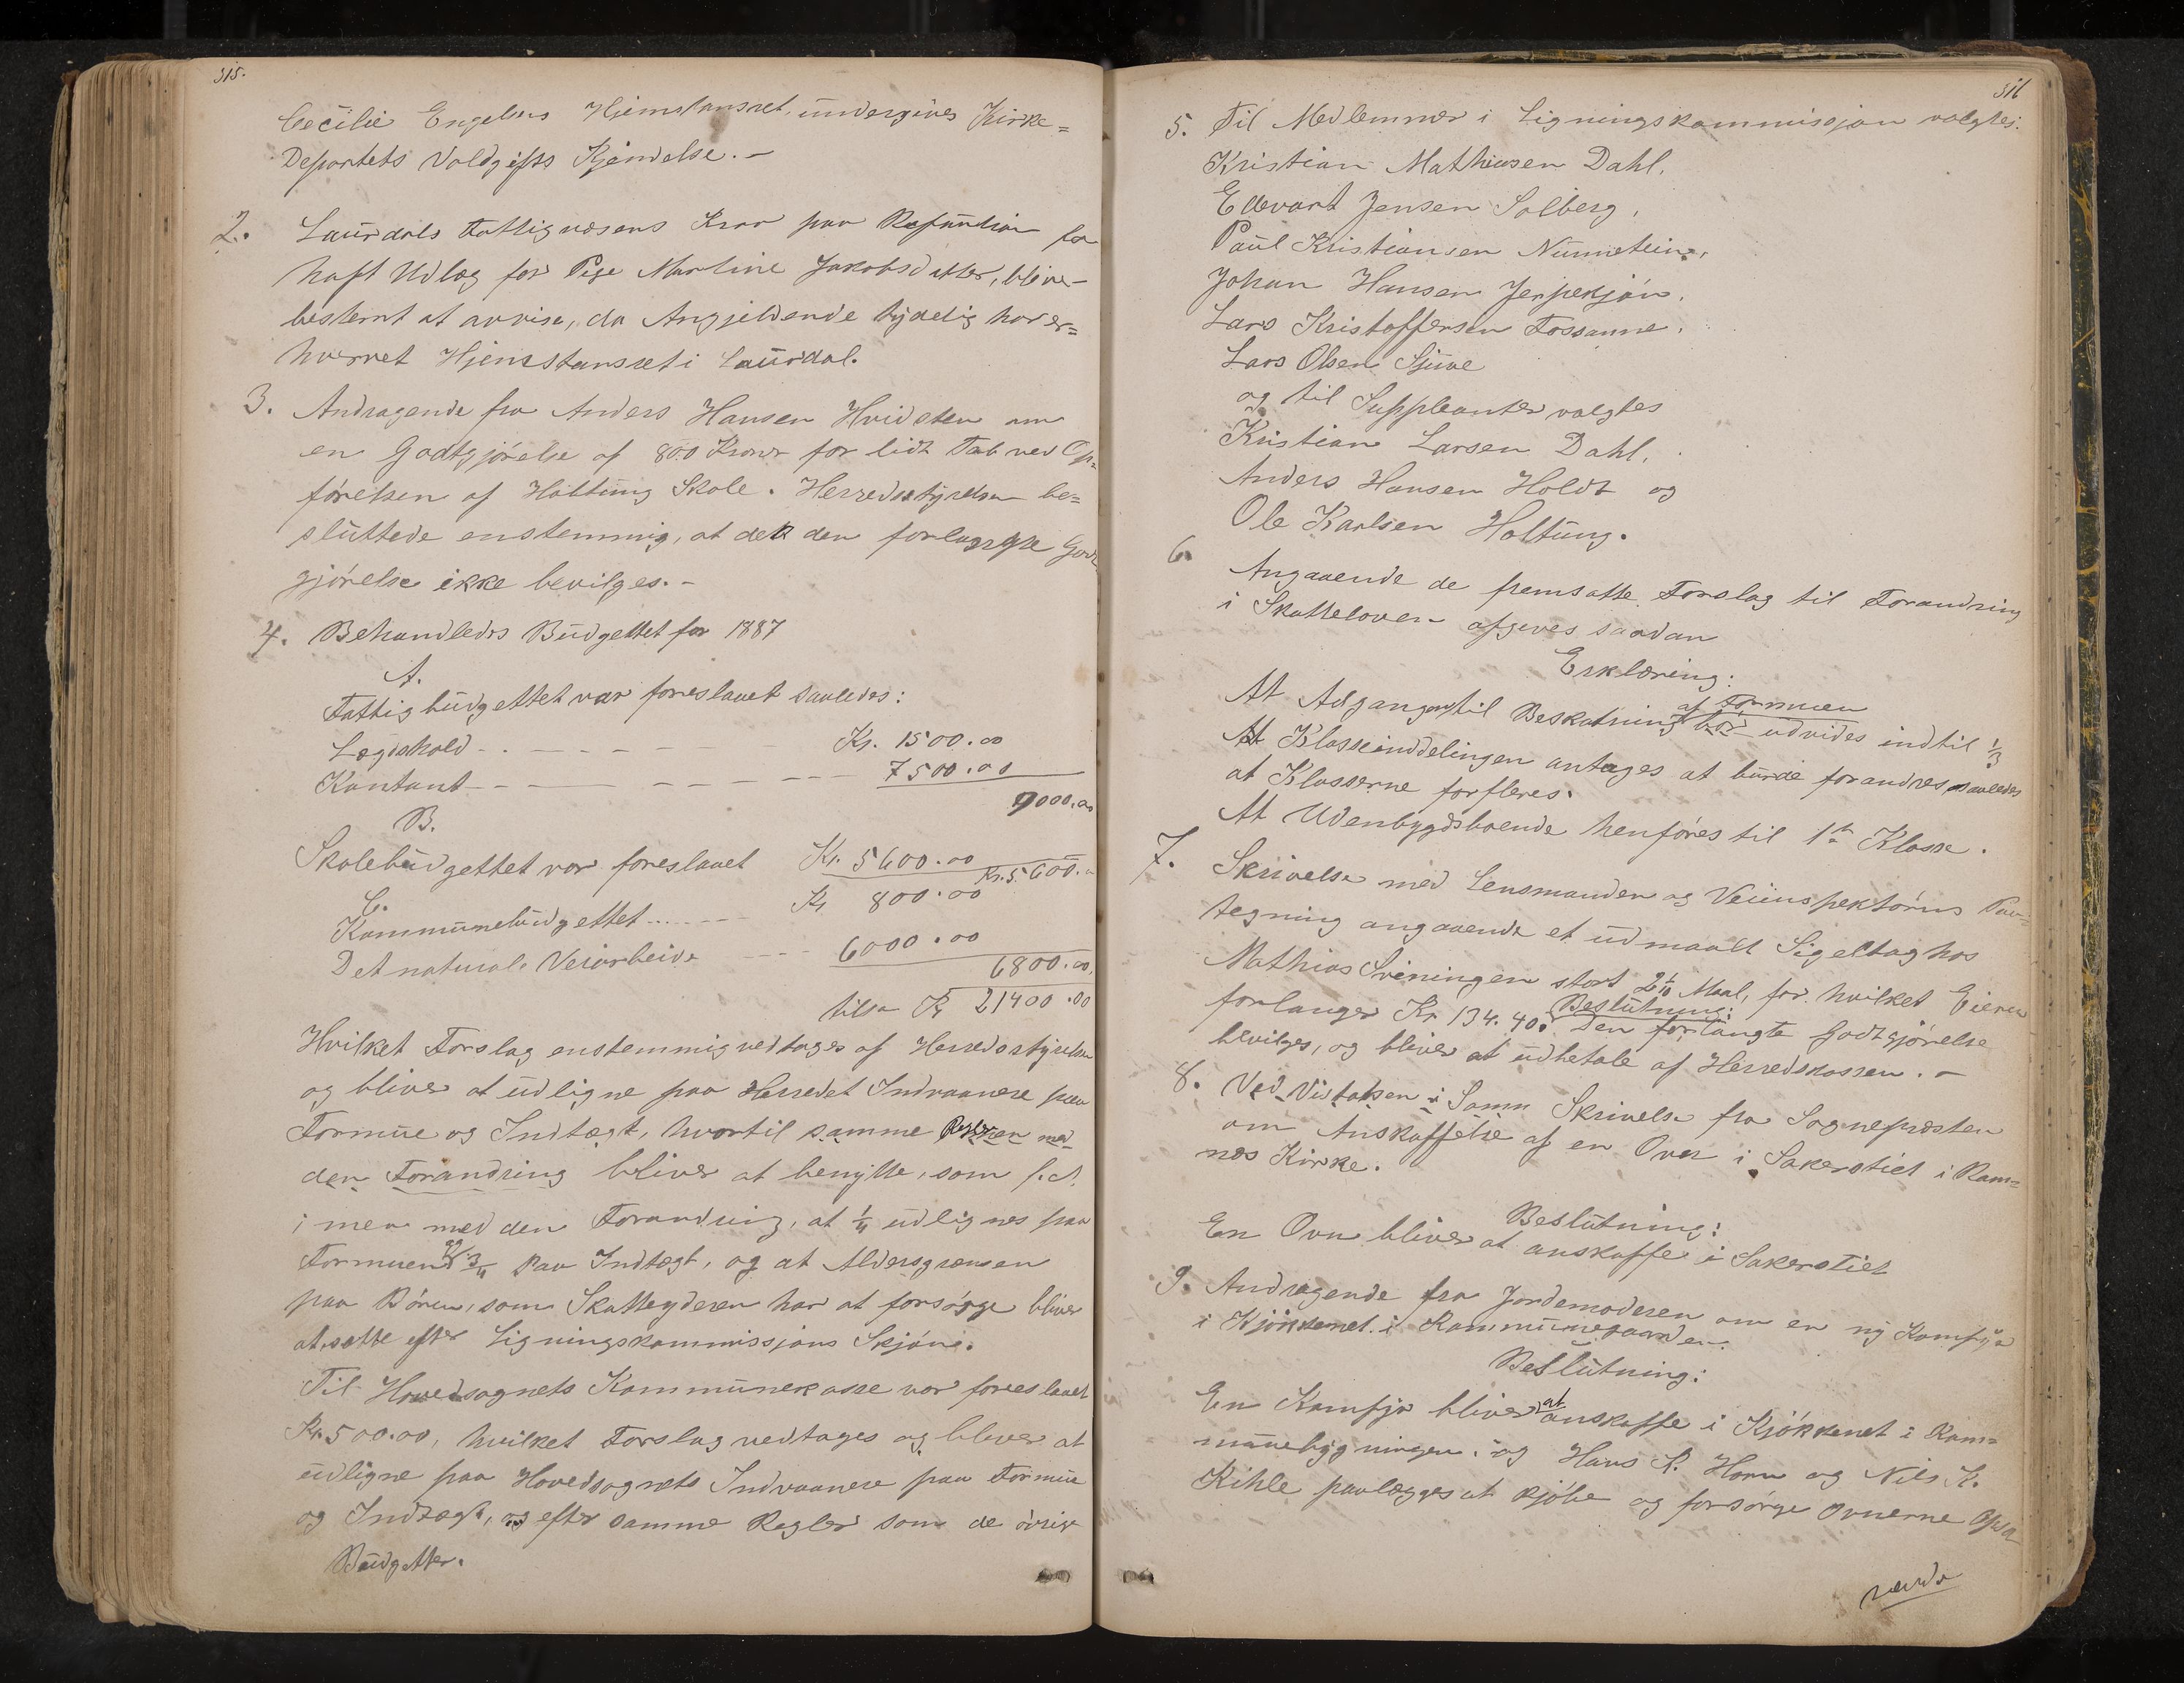 315.
Cecilie Engelsens Hjemstavnsret, undergives Kirke=
Departets Voldgifts Kjendelse. –
2. Laurdals Fattigvæsens Krav paa Refundsion for
haft Udlæg for Pige Martine Jakobsdatter, blive
bestemt at avvise, da Angjeldende tydelig har er=
hvervet Hjemstavnsret i Laurdal.
3. Andragende fra Anders Hansen Hvidsten om
en Godtgjørelse af 800 Kroner for lidt Tab ved Op=
førelsen af Holtung Skole. Herredsstyrelsen be=
sluttede enstemmig, at den forlangte Godt
gjørelse ikke bevilges. –
4. Behandledes Budgettet for 1887
A.
Fattigbudgettet var foreslaaet saaledes:
Lægdshold - - - - - Kr. 1500.00
Kontant - - - - - - 7500.00
9000.00
B.
Skolebudgettet var foreslaaet Kr. 5600.00
Kr. 5600.
C.
Kommunebudgettet ..... Kr 800.00
Det natural. Veiarbeide - - - - 6000.00
6800.00.
tils Kr 21400.00
Hvilket Forslag enstemmig vedtages af Herredsstyrelsen
og bliver at udligne paa Herredet Indvaanere paa
Formue og Indtægt, hvortil samme Regler med
den Forandring bliver at benytte, som f. A.
i men med den Forandring, at 1/4 udlignes paa
Formuen og 3/4 paa Indtægt, og at Aldersgrænsen
paa Børn, som Skatteyderen har at forsørge bliver
at sætte efter Ligningskommissjons Skjøn.
Til Hovedsognets Kommunekasse var foreslaaet
Kr. 500.00, hvilket Forslag vedtages og bliver at
udligne paa Hovedsognets Indvaanere paa Formue
og Indtægt, og efter samme Regler som de øvrige
Budgetter.
316
5. Til Medlemmer i Ligningskommissjon valgtes:
Kristian Mathiesen Dahl,
Edevart Jensen Solberg,
Paul Kristiansen Nummestein,
Johan Hansen Jerpekjøn,
Lars Kristoffersen Fossanne,
Lars Olsen Sjuve
og til Suppleanter valgtes
Kristian Larsen Dahl,
Anders Hansen Holdt og
Ole Karlsen Holtung.
6. Angaaende de fremsatte Forslag til Forandring
i Skatteloven afgives saadan
Erklæring:
At Adgangen til Beskatning af Formuen bør udvides indtil 1/3
At Klasseinddelingen antages at burde forandres, saaledes
at Klasserne forfleres.
At Udenbygdsboende henføres til 1ste Klasse.
7. Skrivelse med Lensmanden og Veiinspektørens Paa=
tegning angaaende et udmaalt Sigeltag hos
Mathias Sveningen stort 2 1/10 Maal, for hvilket Eieren
forlanger Kr 134.40. Beslutning: Den forlangte Godtgjørelse
bevilges, og bliver at udbetale af Herredskassen. –
8. Ved Vistaksen i Samn Skrivelse fra Sognepræsten
om Anskaffelse af en Ovn i Sakerstiet i Ram=
næs Kirke.
Beslutning:
En Ovn bliver at anskaffe i Sakerstiet
9. Andragende fra Jordemoderen om en ny Komfyr
i Kjøkkenet i Kommunegaarden.
Beslutning:
En Komfyr bliver at anskaffe i Kjøkkenet i Kom=
munebygningen, og Hans P. Horn og Nils K.
Kihle paalægges at kjøbe og forsørge Ovnerne Opsa
vende